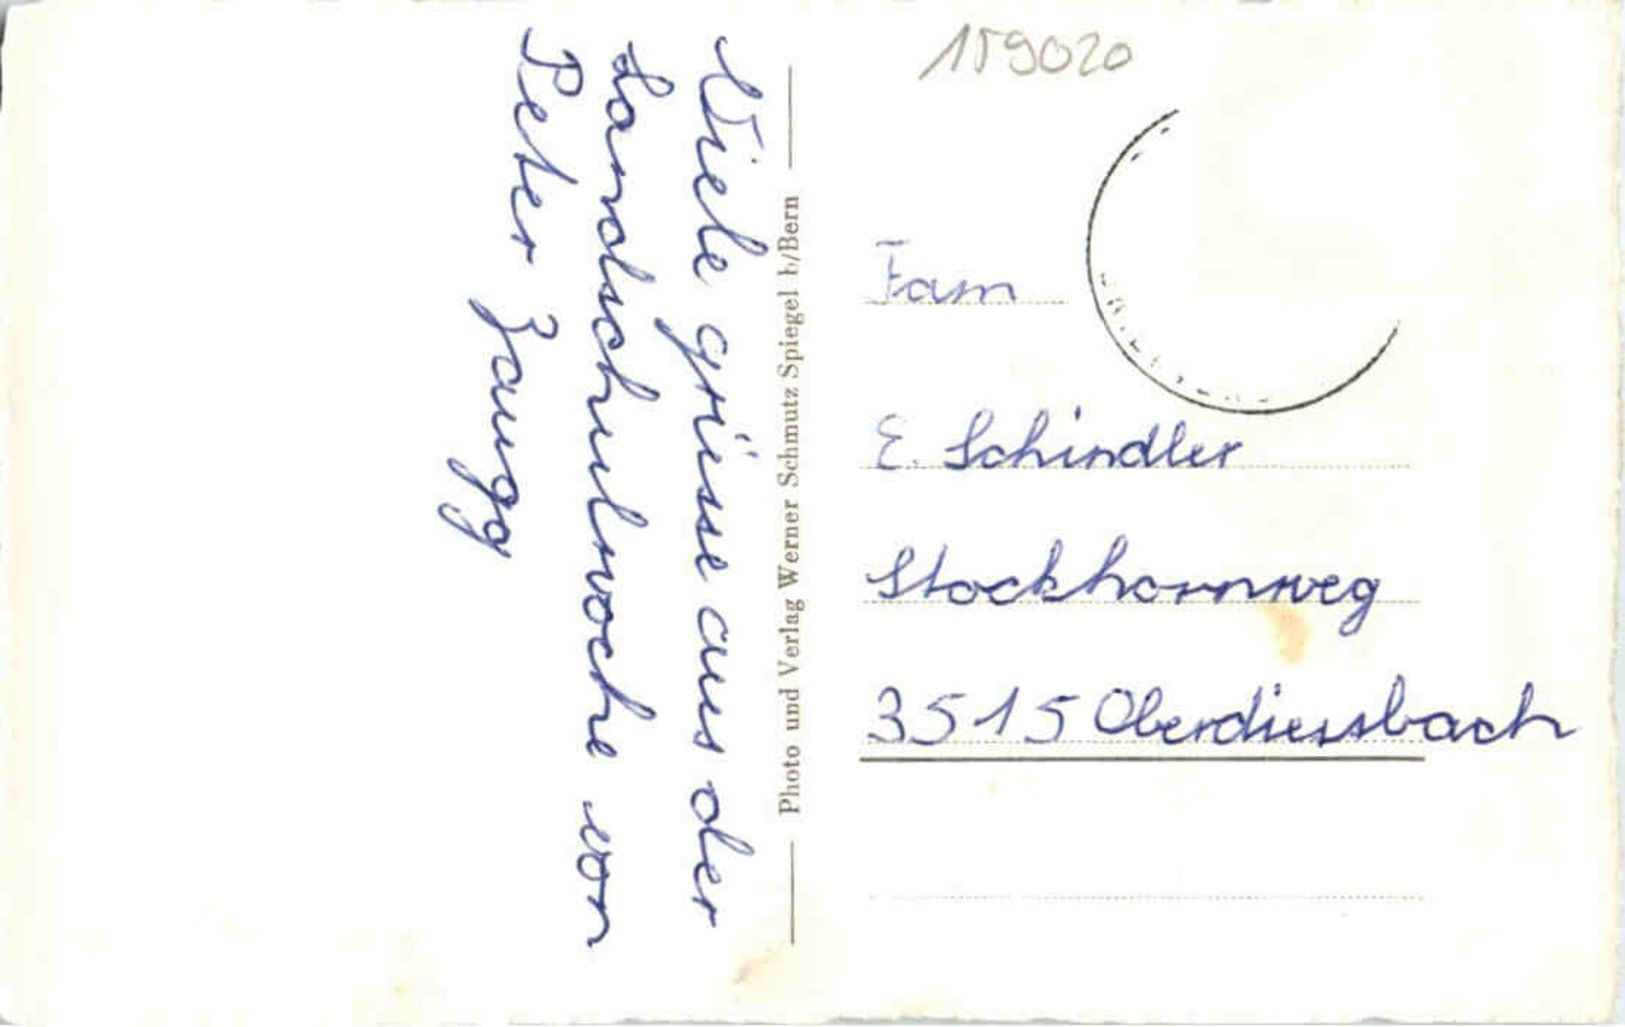 Viele grüsse aus der
Landschulwoche von
Peter Zaugg
Photo und Verlag Werner Schmutz Spiegel b/Bern
159020
Fam
E. Schindler
Stockhornweg
3515 Oberdiessbach